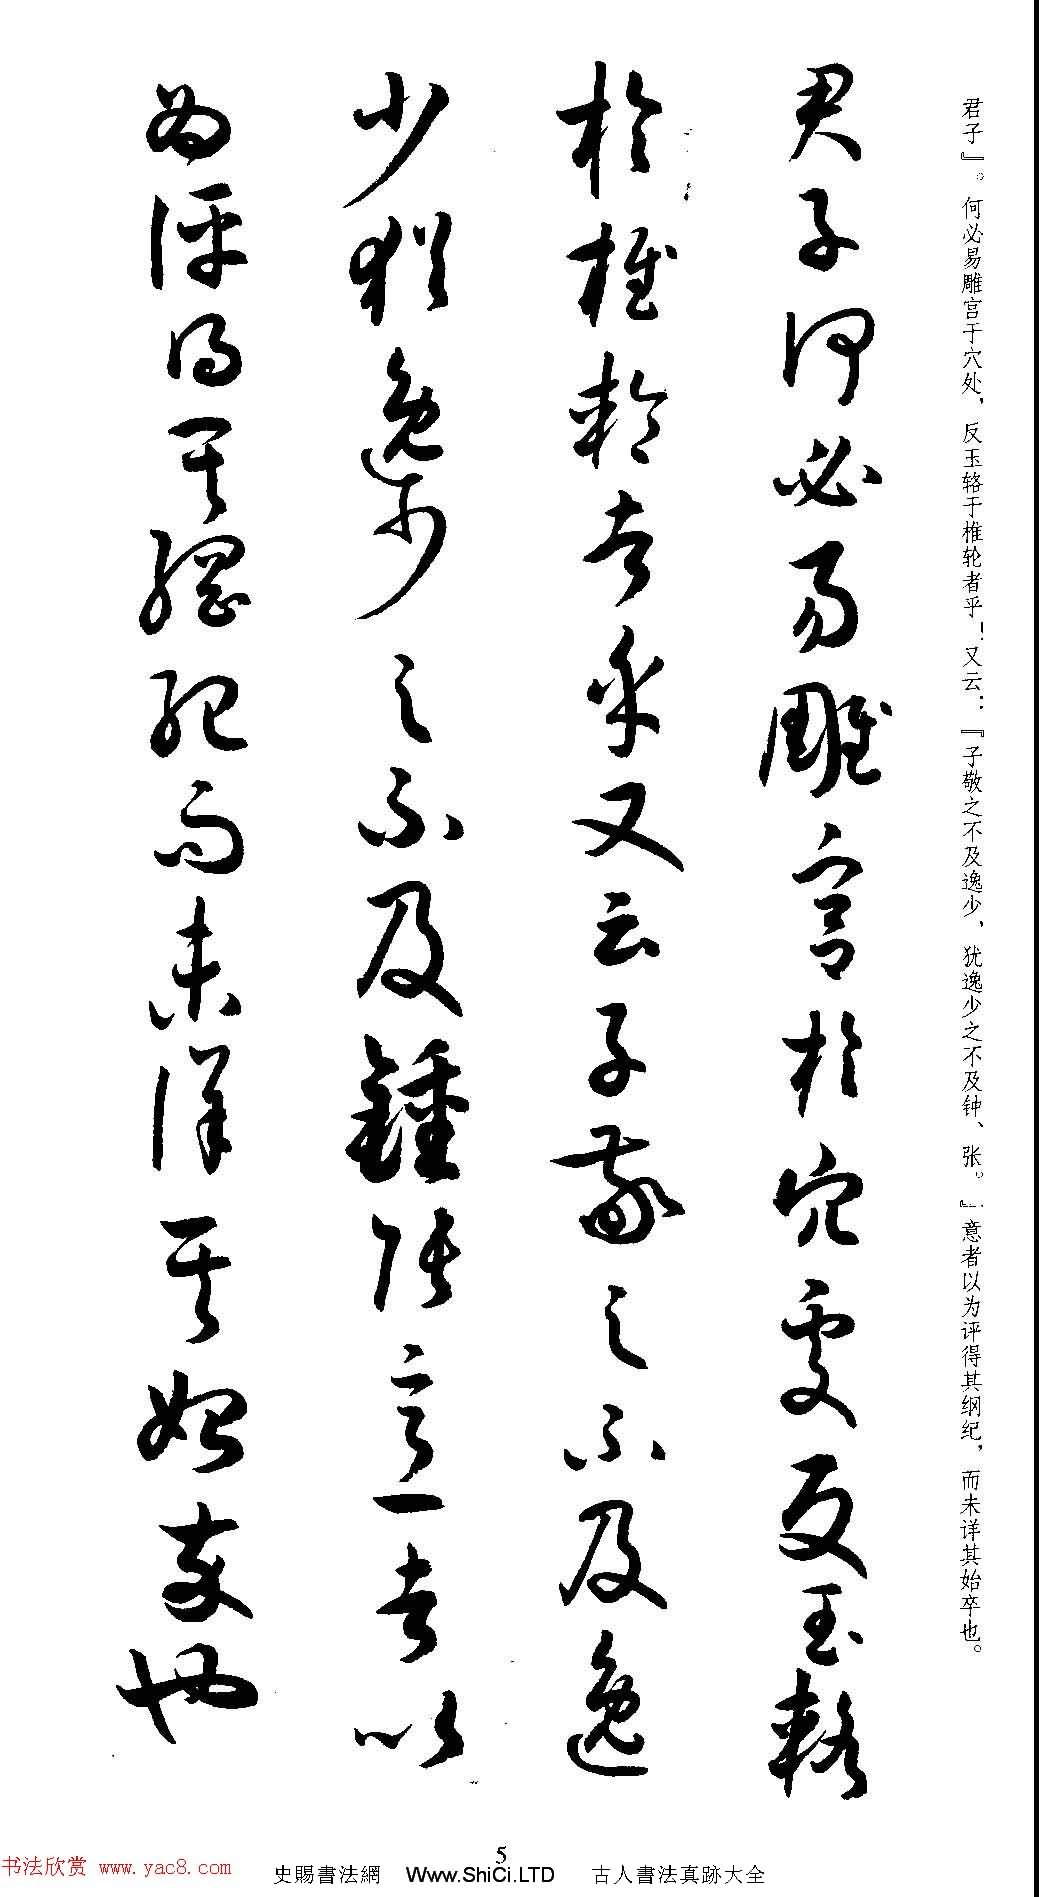 君子』。何必易雕宫于穴处，反玉辂于椎轮者乎！又云：『子敬之不及逸少，犹逸少之不及钟、张。』意者以为评得其纲纪，而未详其始卒也。
君子何必易雕宮於穴處反玉輅
於椎輪者乎又云子敬之不及逸
少猶逸少之不及鍾張意者以
為評得其綱紀而未詳其始卒也
5
书法欣赏 www.yac8.com
史賜書法網 Www.ShiCi.LTD 古人書法真跡大全